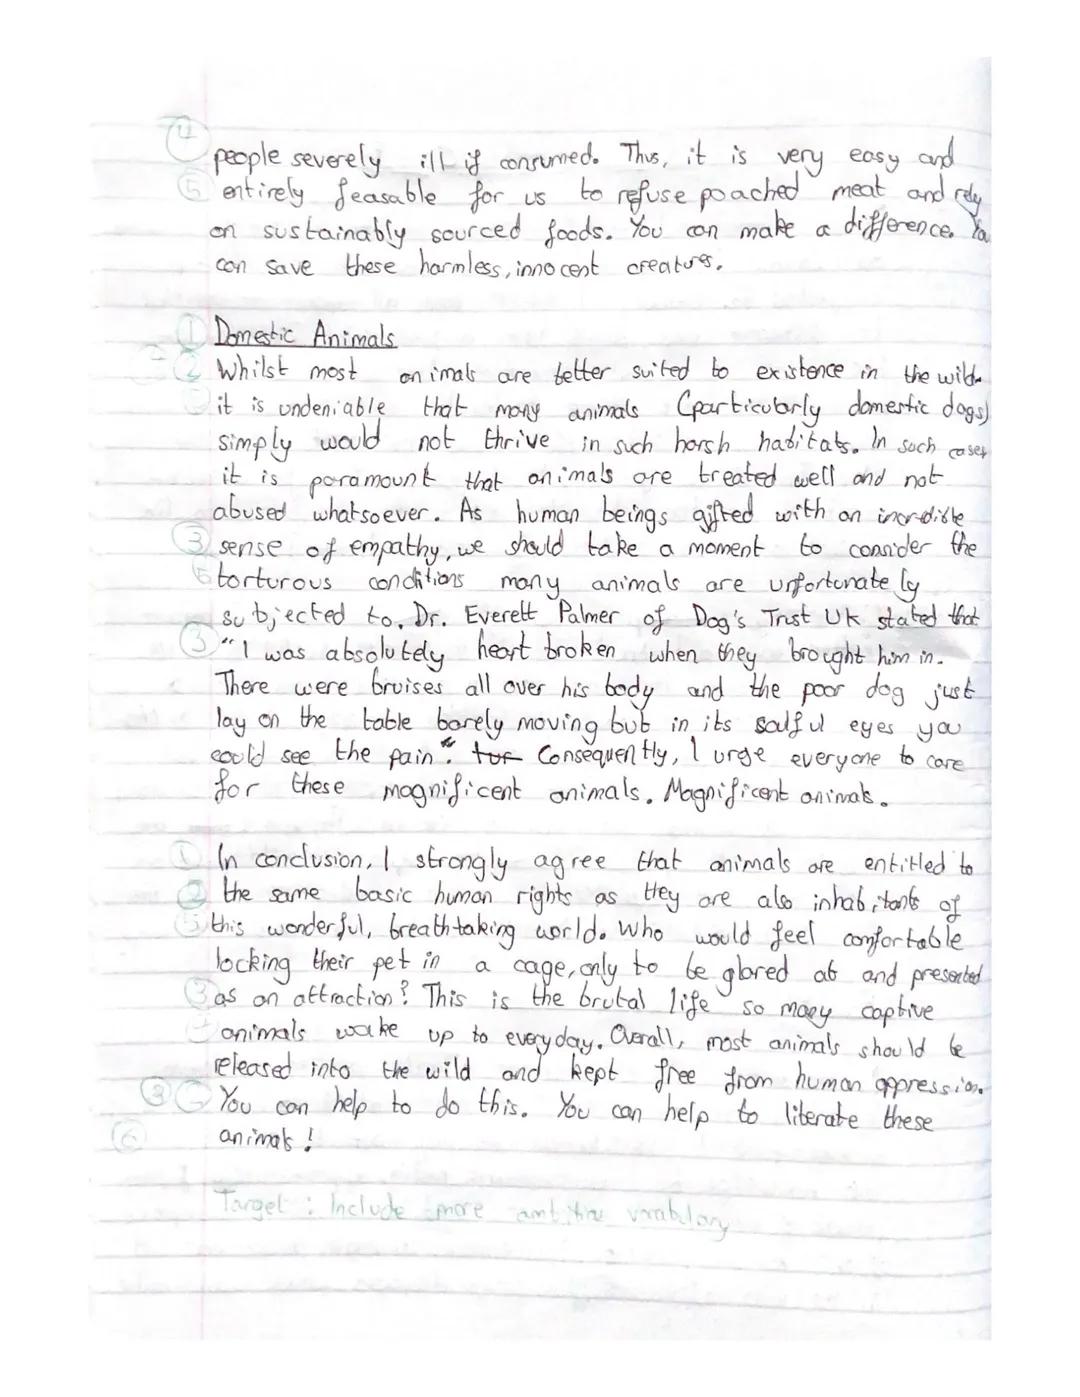 4
people severely ill if consumed. Thus, it is very easy and
5 entirely feasable for us to refuse poached meat and rely
on sustainably sourced foods. You can make a difference. You
can save these harmless, innocent creatures.
1 Domestic Animals
2 Whilst most animals are better suited to existence in the wild
it is undeniable that many animals (particularly domestic dogs)
simply would not thrive in such harsh habitats. In such cases
it is paramount that animals are treated well and not
abused whatsoever. As human beings gifted with an incredible
3 sense of empathy, we should take a moment to consider the
6 torturous conditions many animals are unfortunately
subjected to. Dr. Everett Palmer of Dog's Trust UK stated that
3 "I was absolutely heart broken when they brought him in.
There were bruises all over his body and the poor dog just
lay on the table barely moving but in its soulful eyes you
could see the pain". Consequently, I urge everyone to care
for these magnificent animals. Magnificent animals.
1 In conclusion, I strongly agree that animals are entitled to
2 the same basic human rights as they are also inhabitants of
5 this wonderful, breathtaking world. Who would feel comfortable
locking their pet in a cage, only to be glared at and presented
3 as an attraction? This is the brutal life so many captive
animals wake up to everyday. Overall, most animals should be
released into the wild and kept free from human oppression.
3 You can help to do this. You can help to liberate these
6 animals!
Target : Include more ambitious vocabulary